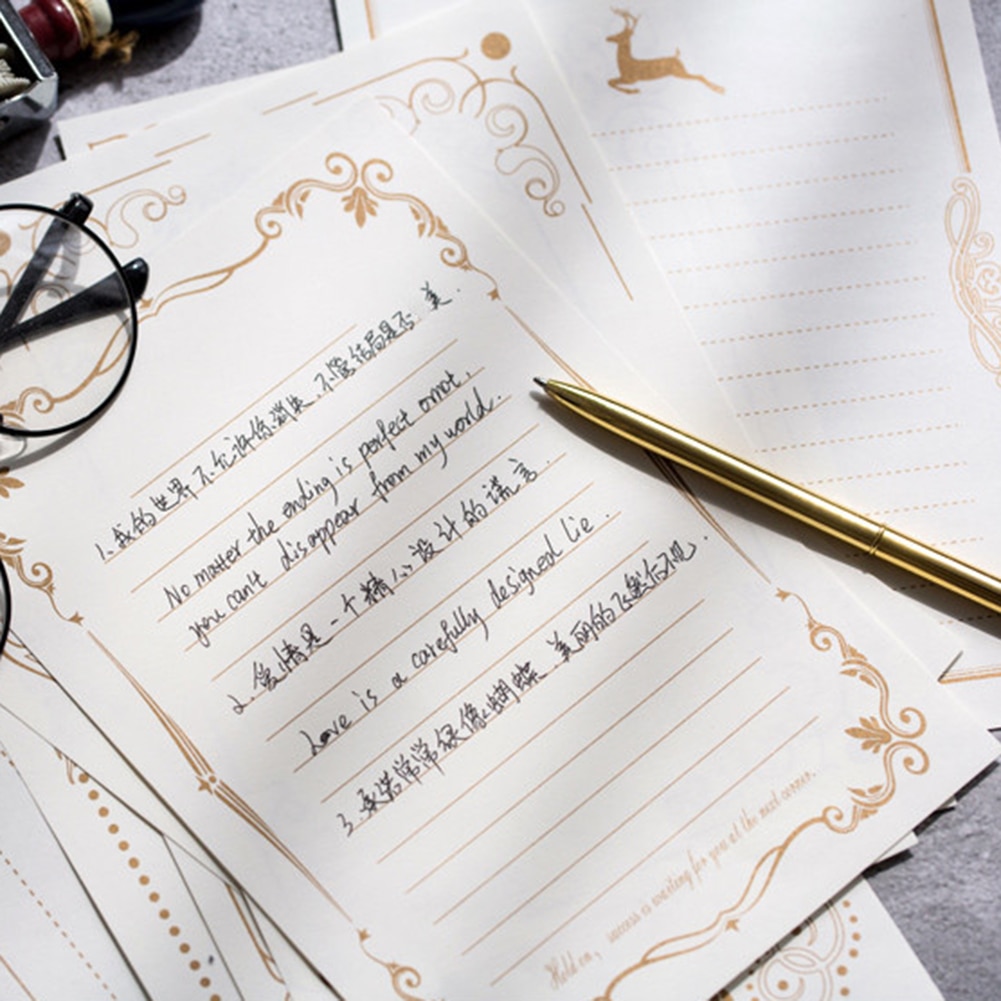 1. 我的世界不允许你消失、不管结局是否 美.
No matter the ending is perfect ornot,
you can't disappear from my world.
2. 爱情是一个精心设计的谎言.
Love is a carefully designed lie.
3. 承诺常常很像蝴蝶、美丽的飞然后不见.
Hold on, success is waiting for you at the next corner.